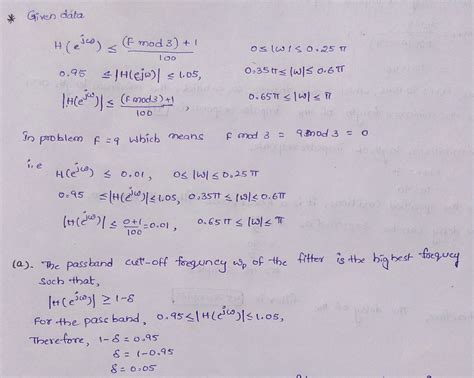 * Given data
H(e^jω) ≤ (F mod 3) + 1 / 100 0 ≤ |W| ≤ 0.25 π
0.95 ≤ |H(ejω)| ≤ 1.05, 0.35π ≤ |W| ≤ 0.6π
|H(e^jω)| ≤ (F mod 3)+1 / 100, 0.65π ≤ |W| ≤ π
In problem F = 9 which means F mod 3 = 9 mod 3 = 0
i.e H(e^jω) ≤ 0.01, 0 ≤ |W| ≤ 0.25π
0.95 ≤ |H(e^jω)| ≤ 1.05, 0.35π ≤ |W| ≤ 0.6π
|H(e^jω)| ≤ 0+1 / 100 = 0.01, 0.65π ≤ |W| ≤ π
(a). The passband cut-off frequncy ωp of the filter is the highest frequcy
such that,
|H(e^jω)| ≥ 1-δ
For the pass band, 0.95 ≤ |H(e^jω)| ≤ 1.05,
Therefore, 1-δ = 0.95
δ = 1-0.95
δ = 0.05